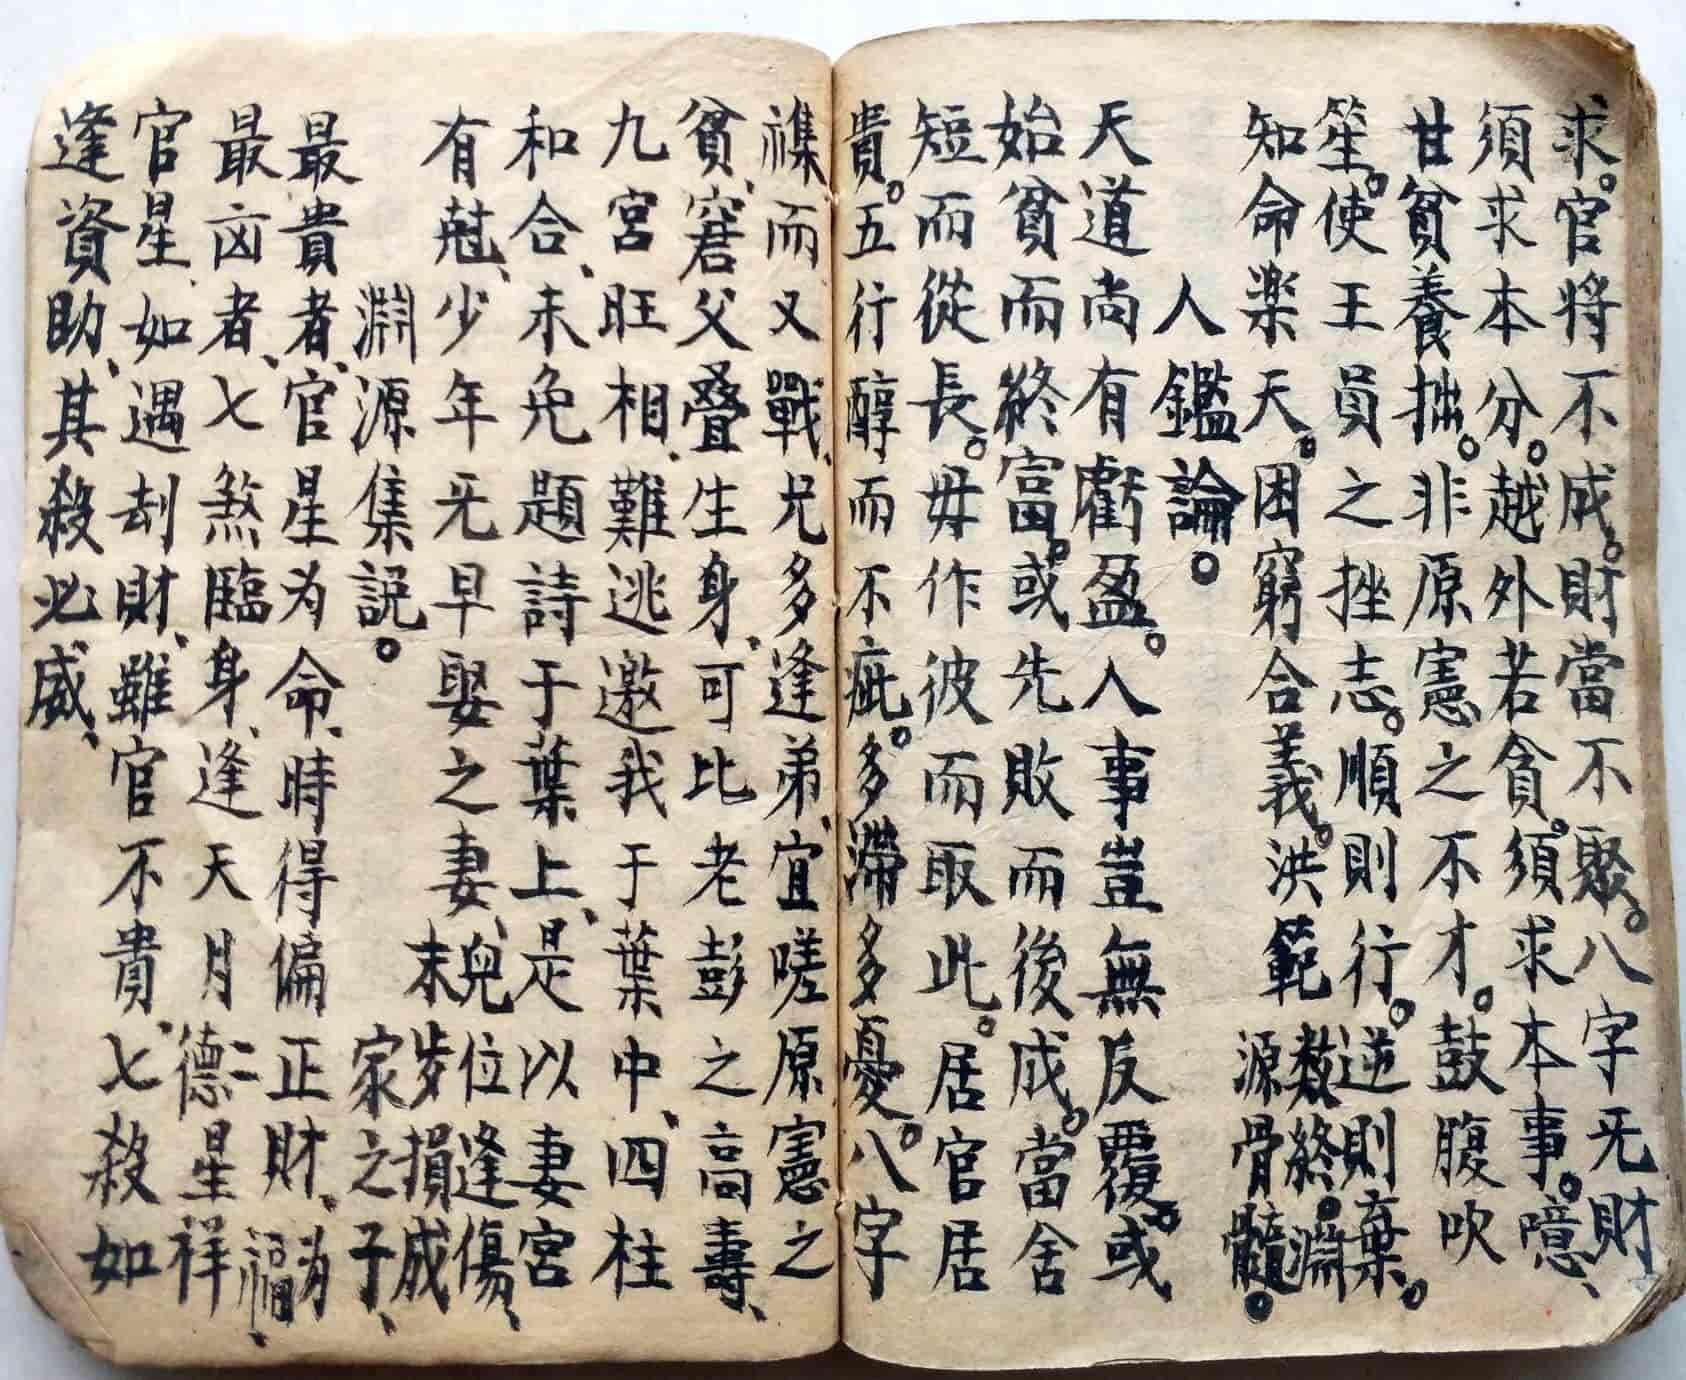 求。官将不成。財當不聚。八字旡財
須求本分。越外若貪。須求本事。噫、
甘貧養拙。非原憲之不才。鼓腹吹
笙。使王員之挫志。順則行。逆則棄。
知命楽天。困窮合義。洪範数終。淵源骨髓。
人鑑論。
天道尚有虧盈。人事豈無反覆。或
始貧而終富。或先敗而後成。當舍
短而從長。毋作彼而取此。居官居
貴。五行醇而不疵。多滯多憂。八字
襍而又戰、兄多逢弟、宜嗟原憲之
貧、窘父疊生身、可比老彭之高壽、
九宮旺相、難逃邀我于葉中、四柱
和合、未免題詩于葉上、是以妻宮
有尅、少年旡早娶之妻、兒位逢傷、末步損成家之子、
淵源集説。
最貴者、官星为命、時得偏正財、为福、
最凶者、七煞臨身、逢天月德二星祥
官星、如遇刦財、雖官不貴、七殺如
逢資助、其殺必威、